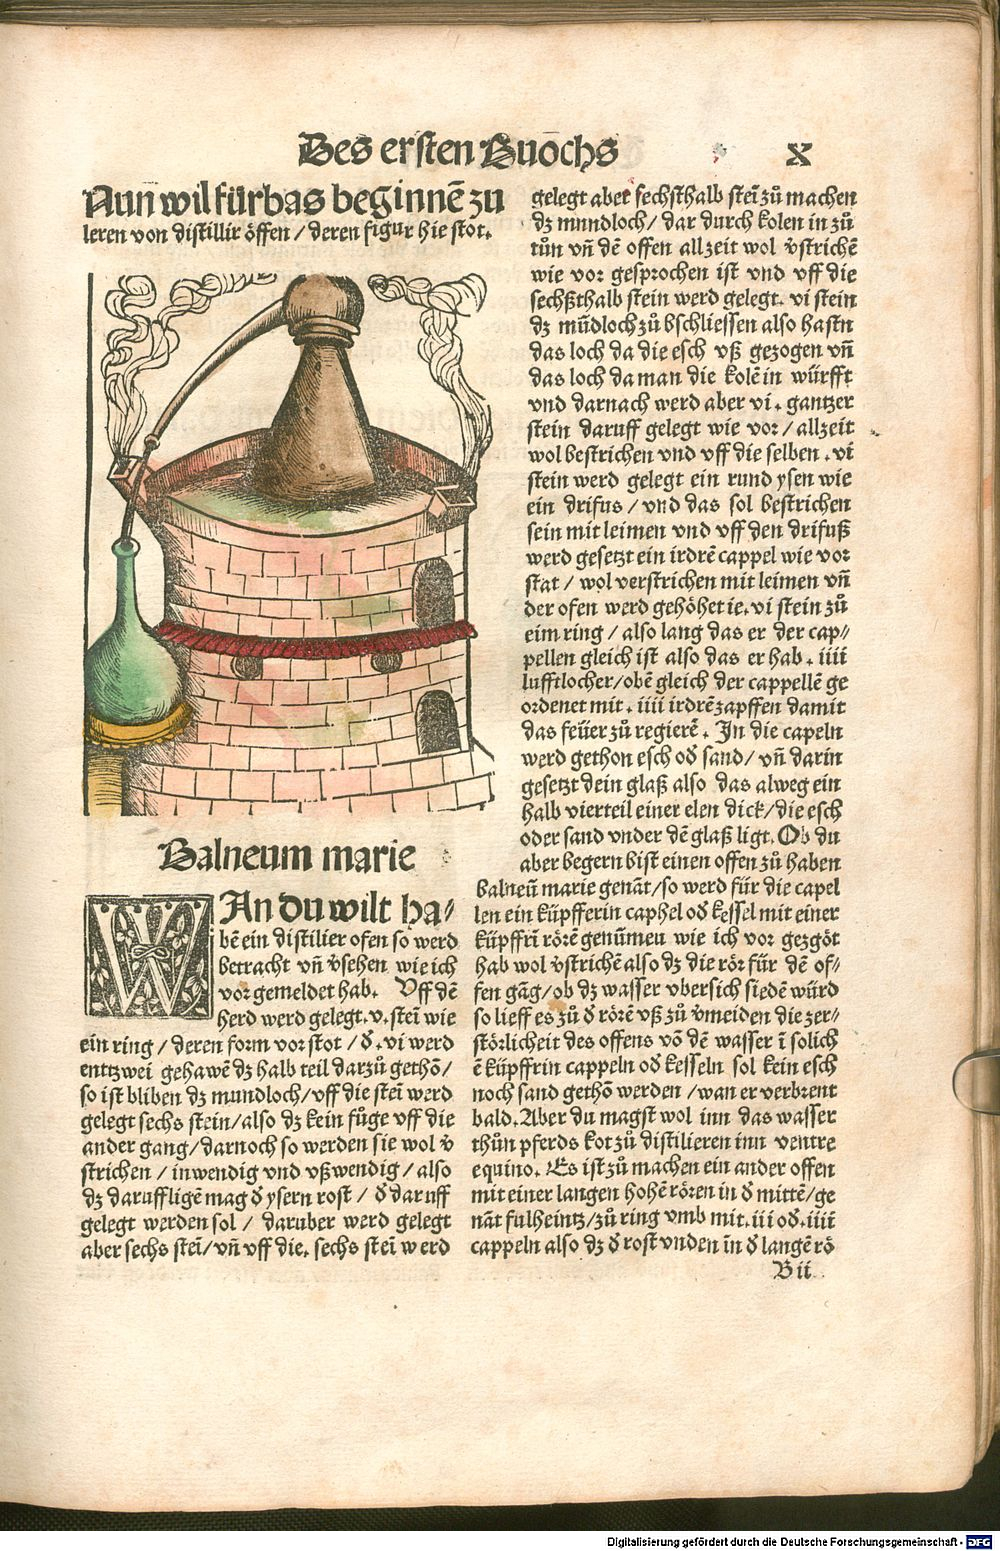 Des ersten Buochs
X
Nun wil fürbas beginnē zu
leren von distillir öffen / deren figur hie stot.
Balneum marie
WAn du wilt ha⸗
bē ein distilier ofen so werd
betracht vñ v̄sehen wie ich
vor gemeldet hab. Vff dē
herd werd gelegt. v. stei͞ wie
ein ring / deren form vor stot / d̄. vi werd
entzwei gehawē dz halb teil darzů gethō /
so ist bliben dz mundloch / vff die stei͞ werd
gelegt sechs stein / also dz kein füge vff die
ander gang / darnoch so werden sie wol v̄
strichen / inwendig vnd vßwendig / also
dz daruff ligē mag d̄ ysern rost / d̄ daruff
gelegt werden sol / daruber werd gelegt
aber sechs stei͞ / vñ vff die. sechs stei͞ werd
gelegt aber sechsthalb stei͞ zů machen
dz mundloch / dar durch kolen in zů
tůn vñ dē offen allzeit wol v̄strichē
wie vor gesprochen ist vnd vff die
sechßthalb stein werd gelegt. vi stein
dz mūdloch zů bschliessen also hastu
das loch da die esch vß gezogen vñ
das loch da man die kolē in würfft
vnd darnach werd aber vi. gantzer
stein daruff gelegt wie vor / allzeit
wol bestrichen vnd vff die selben. vi
stein werd gelegt ein rund ysen wie
ein drifus / vnd das sol bestrichen
sein mit leimen vnd vff den drifuß
werd gesetzt ein irdrē cappel wie vor
stat / wol verstrichen mit leimen vñ
der ofen werd gehöhet ie. vi stein zů
eim ring / also lang das er der cap⸗
pellen gleich ist also das er hab. iiii
lufftlocher / obē gleich der cappellē ge
ordenet mit. iiii irdrē zapffen damit
das feüer zů regierē. In die capeln
werd gethon esch od̄ sand / vñ darin
gesetzt dein glaß also das alweg ein
halb vierteil einer elen dick / die esch
oder sand vnder dē glaß ligt. Ob du
aber begern bist einen offen zů haben
balneū marie genāt / so werd für die capel
len ein küpfferin caphel od̄ kessel mit einer
küpffrī rörē genūmeu wie ich vor gezgöt
hab wol v̄strichē also dz die rör für dē of⸗
fen gāg / ob dz wasser vbersich siedē würd
so lieff es zů d̄ rörē vß zů v̄meiden die zer⸗
störlicheit des offens vō dē wasser ī solich
ē küpffrin cappeln od̄ kesseln sol kein esch
noch sand gethō werden / wan er verbrent
bald. Aber du magst wol inn das wasser
thůn pferds kot zů distilieren inn ventre
equino. Es ist zů machen ein ander offen
mit einer langen hohē rören in d̄ mittē / ge
nāt fulheintz / zů ring vmb mit. iii od̄. iiii
cappeln also dz d̄ rost vnden in d̄ langē rö
B ii
Digitalisierung gefördert durch die Deutsche Forschungsgemeinschaft - DFG